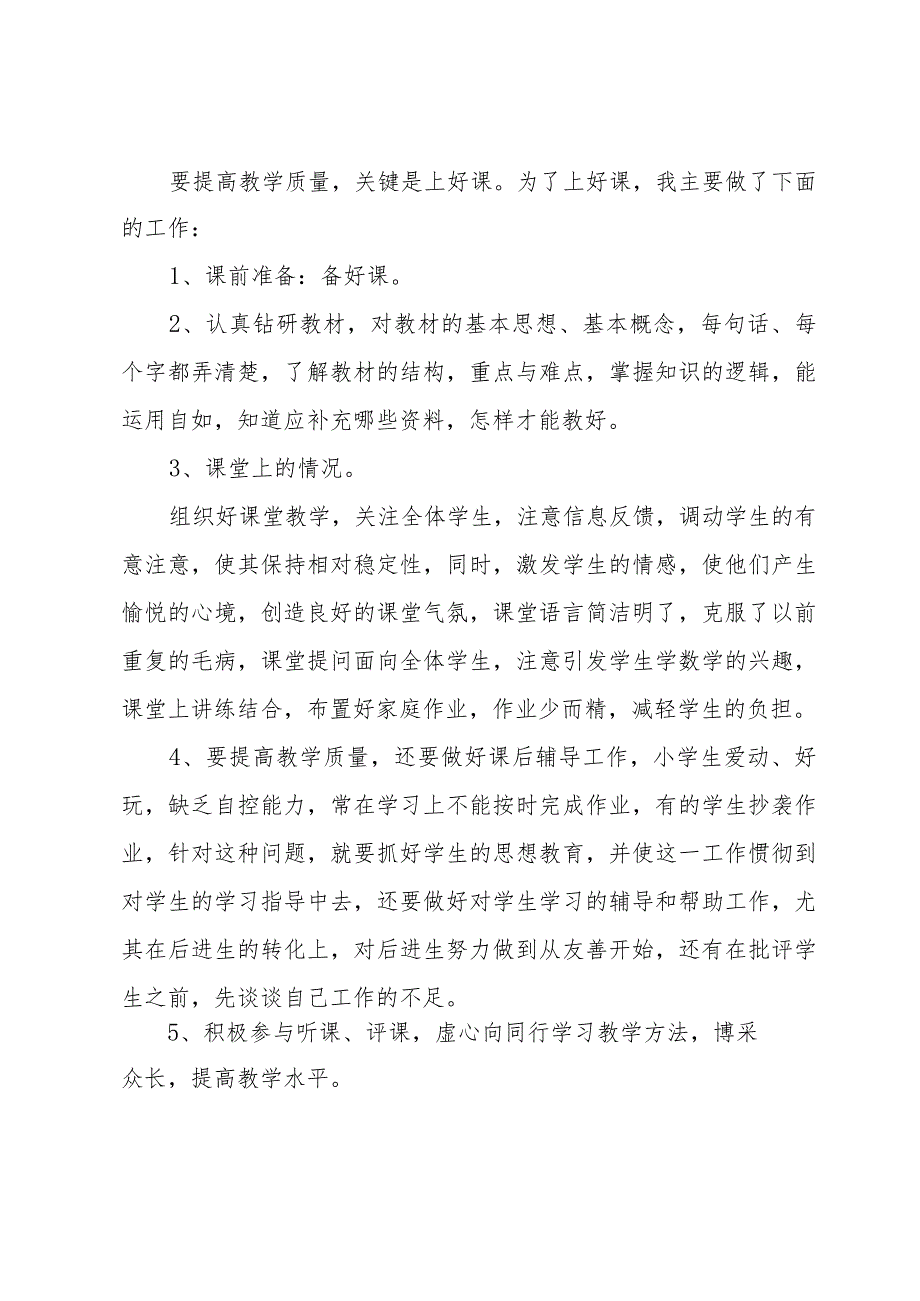 要提高教学质量，关键是上好课。为了上好课，我主要做了下面
的工作：
1、课前准备：备好课。
2、认真钻研教材，对教材的基本思想、基本概念，每句话、每
个字都弄清楚，了解教材的结构，重点与难点，掌握知识的逻辑，能
运用自如，知道应补充哪些资料，怎样才能教好。
3、课堂上的情况。
组织好课堂教学，关注全体学生，注意信息反馈，调动学生的有
意注意，使其保持相对稳定性，同时，激发学生的情感，使他们产生
愉悦的心境，创造良好的课堂气氛，课堂语言简洁明了，克服了以前
重复的毛病，课堂提问面向全体学生，注意引发学生学数学的兴趣，
课堂上讲练结合，布置好家庭作业，作业少而精，减轻学生的负担。
4、要提高教学质量，还要做好课后辅导工作，小学生爱动、好
玩，缺乏自控能力，常在学习上不能按时完成作业，有的学生抄袭作
业，针对这种问题，就要抓好学生的思想教育，并使这一工作惯彻到
对学生的学习指导中去，还要做好对学生学习的辅导和帮助工作，尤
其在后进生的转化上，对后进生努力做到从友善开始，还有在批评学
生之前，先谈谈自己工作的不足。
5、积极参与听课、评课，虚心向同行学习教学方法，博采
众长，提高教学水平。